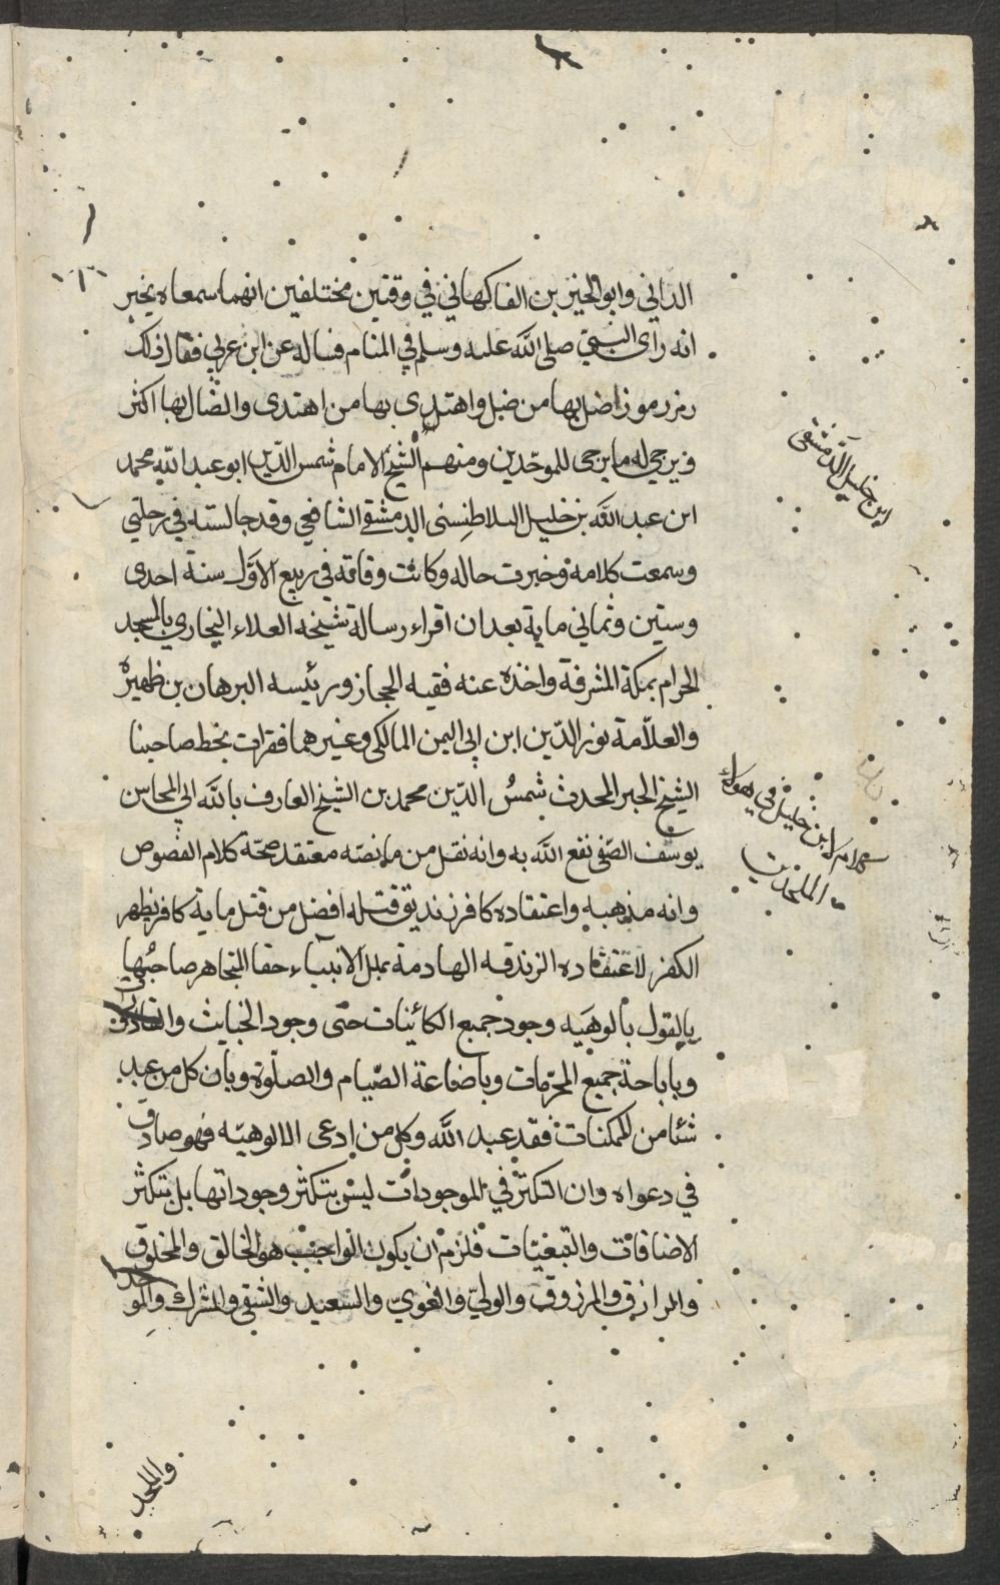 الداني وابو الخير بن الفاكهاني في وقتين مختلفين انهما سمعاه يخبر
انه راى النبي صلى الله عليه وسلم في المنام فساله عن ابن عربي فقال ذلك
رمز رموزا ضل بها من ضل واهتدى بها من اهتدى والضال بها اكثر
فيرجى له ما يرجى للموحدين ومنهم الشيخ الامام شمس الدين ابو عبد الله محمد
ابن عبد الله بن خليل البلاطنسي الدمشقي الشافعي وقد جالسته في رحلتي
وسمعت كلامه وخبرت حاله وكانت وفاته في ربيع الاول سنة احدى
وستين وثماني ماية بعد ان اقراء رسالة شيخه العلاء البخاري بالمسجد
الحرام بمكة المشرفة واخذه عنه فقيه الحجاز ورئيسه البرهان بن ظهيره
والعلامة نور الدين ابن ابي اليمن المالكي وغيرهما فقرات بخط صاحبنا
الشيخ الحبر المحدث شمس الدين محمد بن الشيخ العارف بالله ابي المحاسن
يوسف الصفي نفع الله به وانه نقل من ما نصه معتقد صحة كلام الفصوص
وانه مذهبه واعتقاده كافر زنديق قتله افضل من قتل ماية كافر يظهر
الكفر لاعتقاده الزندقه الهادمة بملل الانبياء حقا المتجاهر صاحبها
بالقول بالوهيه وجود جميع الكائنات حتى وجود الخبايث والقاذورات
وباباحة جميع المحرمات وباضاعة الصيام والصلوة وبان كل من عبد
شئا من الممكنات فقد عبد الله وكل من ادعى الالوهيه فهو صادق
في دعواه وان التكثر في الموجودات ليس بتكثر وجوداتها بل بتكثر
الاضافات والتعينات فلزم ان يكون الواجب هو الخالق والمخلوق
والرازق والمرزوق والولي والغوي والسعيد والشقي والمشرك والموحد
والملحد
ابن خليل الدمشقي
كلام ابن خليل في هولاء
الملحدين